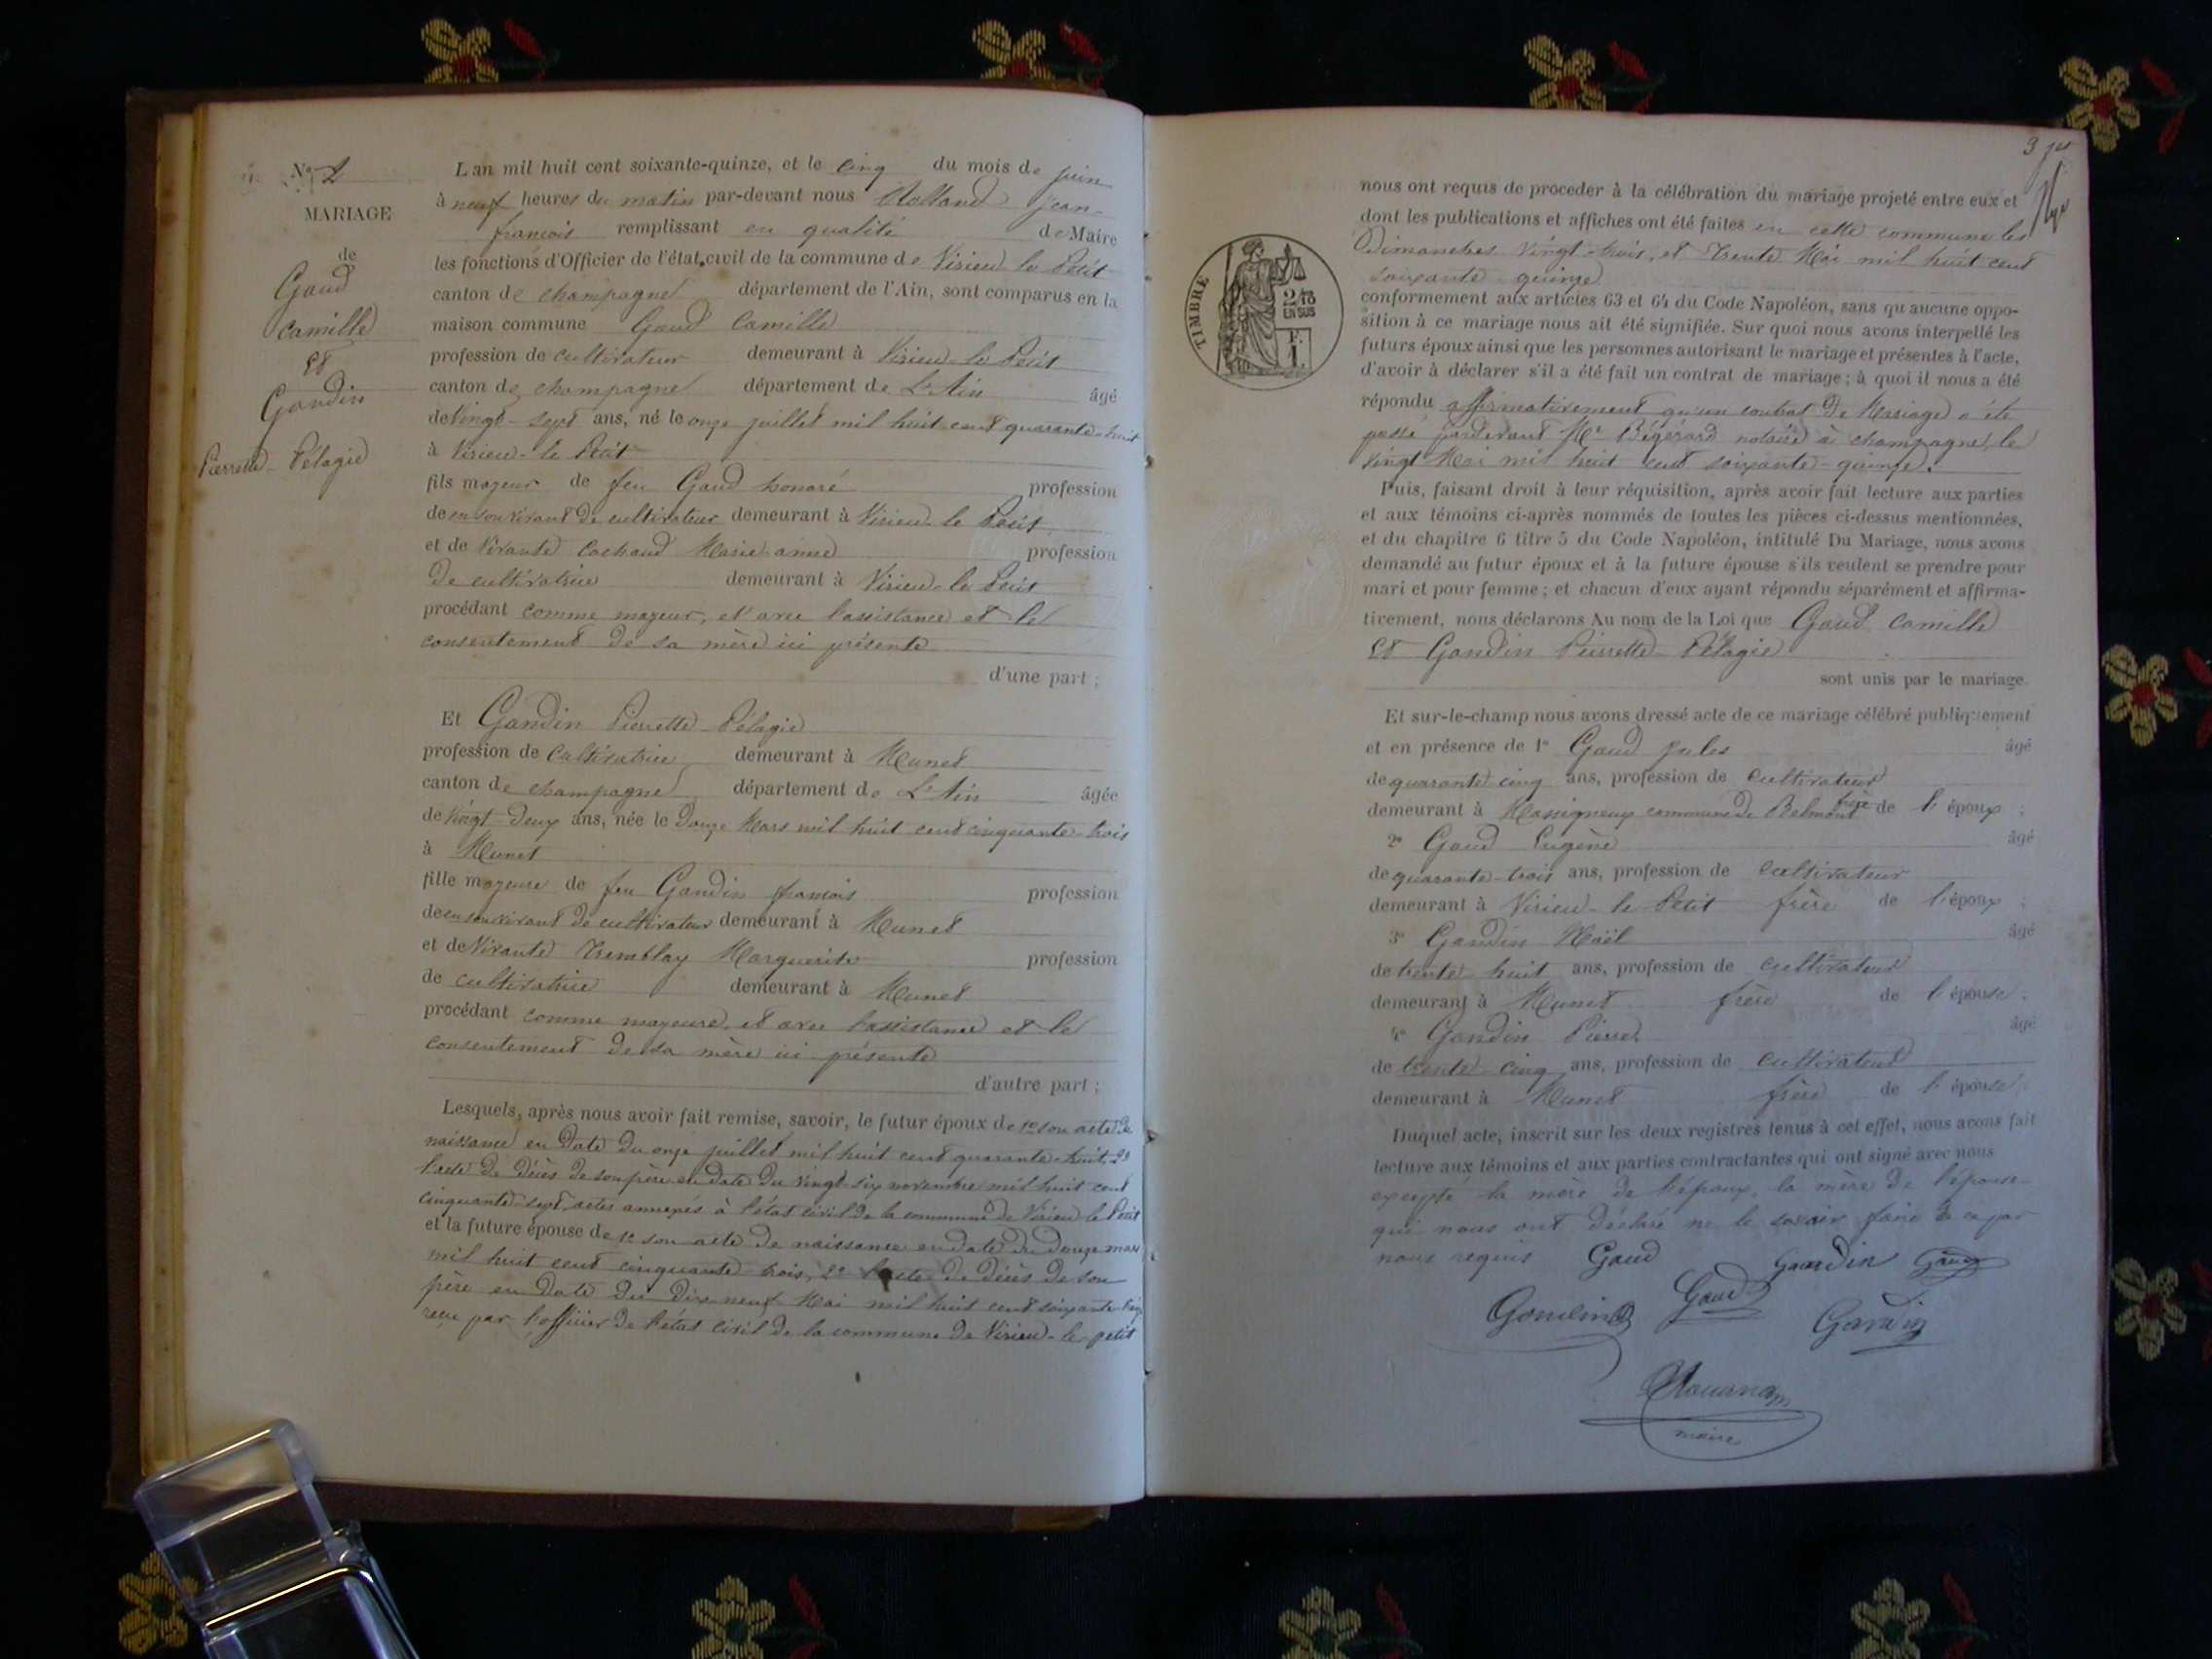 No 2
MARIAGE
de
Gaud
Camille
Et
Gandin
Pierrette Pélagie
L'an mil huit cent soixante-quinze, et le cinq du mois de juin
à neuf heures du matin par-devant nous Jean-
francois remplissant en qualité de Maire
les fonctions d'Officier de l'état civil de la commune de Virieu le Petit
canton de champagne département de l'Ain, sont comparus en la
maison commune Gaud Camille
profession de cultivateur demeurant à Virieu-le Petit
canton de champagne département de L'Ain âgé
de Vingt-sept ans, né le onze juillet mil huit cent quarante-huit
à Virieu-le Petit
fils majeur de feu Gaud honoré profession
de en son vivant de cultivateur demeurant à Virieu-le Petit
et de Vivante Cochand Marie anne profession
De cultivatrice demeurant à Virieu-le Petit
procédant comme majeur, et avec l'assistance et le
consentement de sa mère ici présente
d'une part ;
Et Gandin Pierrette Pélagie
profession de Cultivatrice demeurant à Munet
canton de champagne département de L'Ain âgée
de Vingt-Deux ans, née le Douze Mars mil huit cent cinquante-trois
à Munet
fille majeure de feu Gandin francois profession
de en son vivant de cultivateur demeurant à Munet
et de Vivante Tremblay Marguerite profession
de cultivatrice demeurant à Munet
procédant comme majeure, et avec l'assistance et le
consentement de sa mère ici présente
d'autre part ;
Lesquels, après nous avoir fait remise, savoir, le futur époux de 1° son acte de
naissance en Date du onze juillet mil huit cent quarante-huit, 2°
l'acte de Décès de son père en Date du Vingt-six novembre mil huit cent
cinquante-sept, actes annexés à l'état civil de la commune de Virieu le Petit
et la future épouse de 1° son acte de naissance en Date du Douze mars
mil huit cent cinquante-trois, 2° l'acte de Décès de son
père en Date du Dix-neuf Mai mil huit cent soixante
reçu par l'officier de l'état civil de la commune de Virieu-le-petit
TIMBRE
2/10
EN SUS
F.
1.
nous ont requis de proceder à la célébration du mariage projeté entre eux et
dont les publications et affiches ont été faites en cette commune les
Dimanches Vingt-trois, et Trente Mai mil huit cent
soixante-quinze
conformement aux articles 63 et 64 du Code Napoléon, sans qu'aucune oppo-
sition à ce mariage nous ait été signifiée. Sur quoi nous avons interpellé les
futurs époux ainsi que les personnes autorisant le mariage et présentes à l'acte,
d'avoir à déclarer s'il a été fait un contrat de mariage ; à quoi il nous a été
répondu affirmativement qu'un contrat de Mariage a été
passé pardevant Me Bégérard notaire à champagne, le
Vingt Mai mil huit cent soixante-quinze.
Puis, faisant droit à leur réquisition, après avoir fait lecture aux parties
et aux témoins ci-après nommés de toutes les pièces ci-dessus mentionnées,
et du chapitre 6 titre 5 du Code Napoléon, intitulé Du Mariage, nous avons
demandé au futur époux et à la future épouse s'ils veulent se prendre pour
mari et pour femme ; et chacun d'eux ayant répondu séparément et affirma-
tivement, nous déclarons Au nom de la Loi que Gaud Camille
Et Gandin Pierrette Pélagie
sont unis par le mariage.
Et sur-le-champ nous avons dressé acte de ce mariage célébré publiquement
et en présence de 1° Gaud Jules âgé
de quarante cinq ans, profession de Cultivateur
demeurant à Massigneux commune de Belmont frère de l'époux ;
2° Gaud Eugène âgé
de quarante-trois ans, profession de Cultivateur
demeurant à Virieu-le Petit frère de l'époux ;
3° Gandin Noël âgé
de trente huit ans, profession de cultivateur
demeurant à Munet frère de l'épouse ;
4° Gandin Pierre âgé
de trente cinq ans, profession de Cultivateur
demeurant à Munet frère de l'épouse.
Duquel acte, inscrit sur les deux registres tenus à cet effet, nous avons fait
lecture aux témoins et aux parties contractantes qui ont signé avec nous
excepté la mère de l'époux, la mère de l'épouse
qui nous ont déclaré ne le savoir faire de ce par
nous requis Gaud Gandin Gaud
Gandin Gaud Gandin
maire